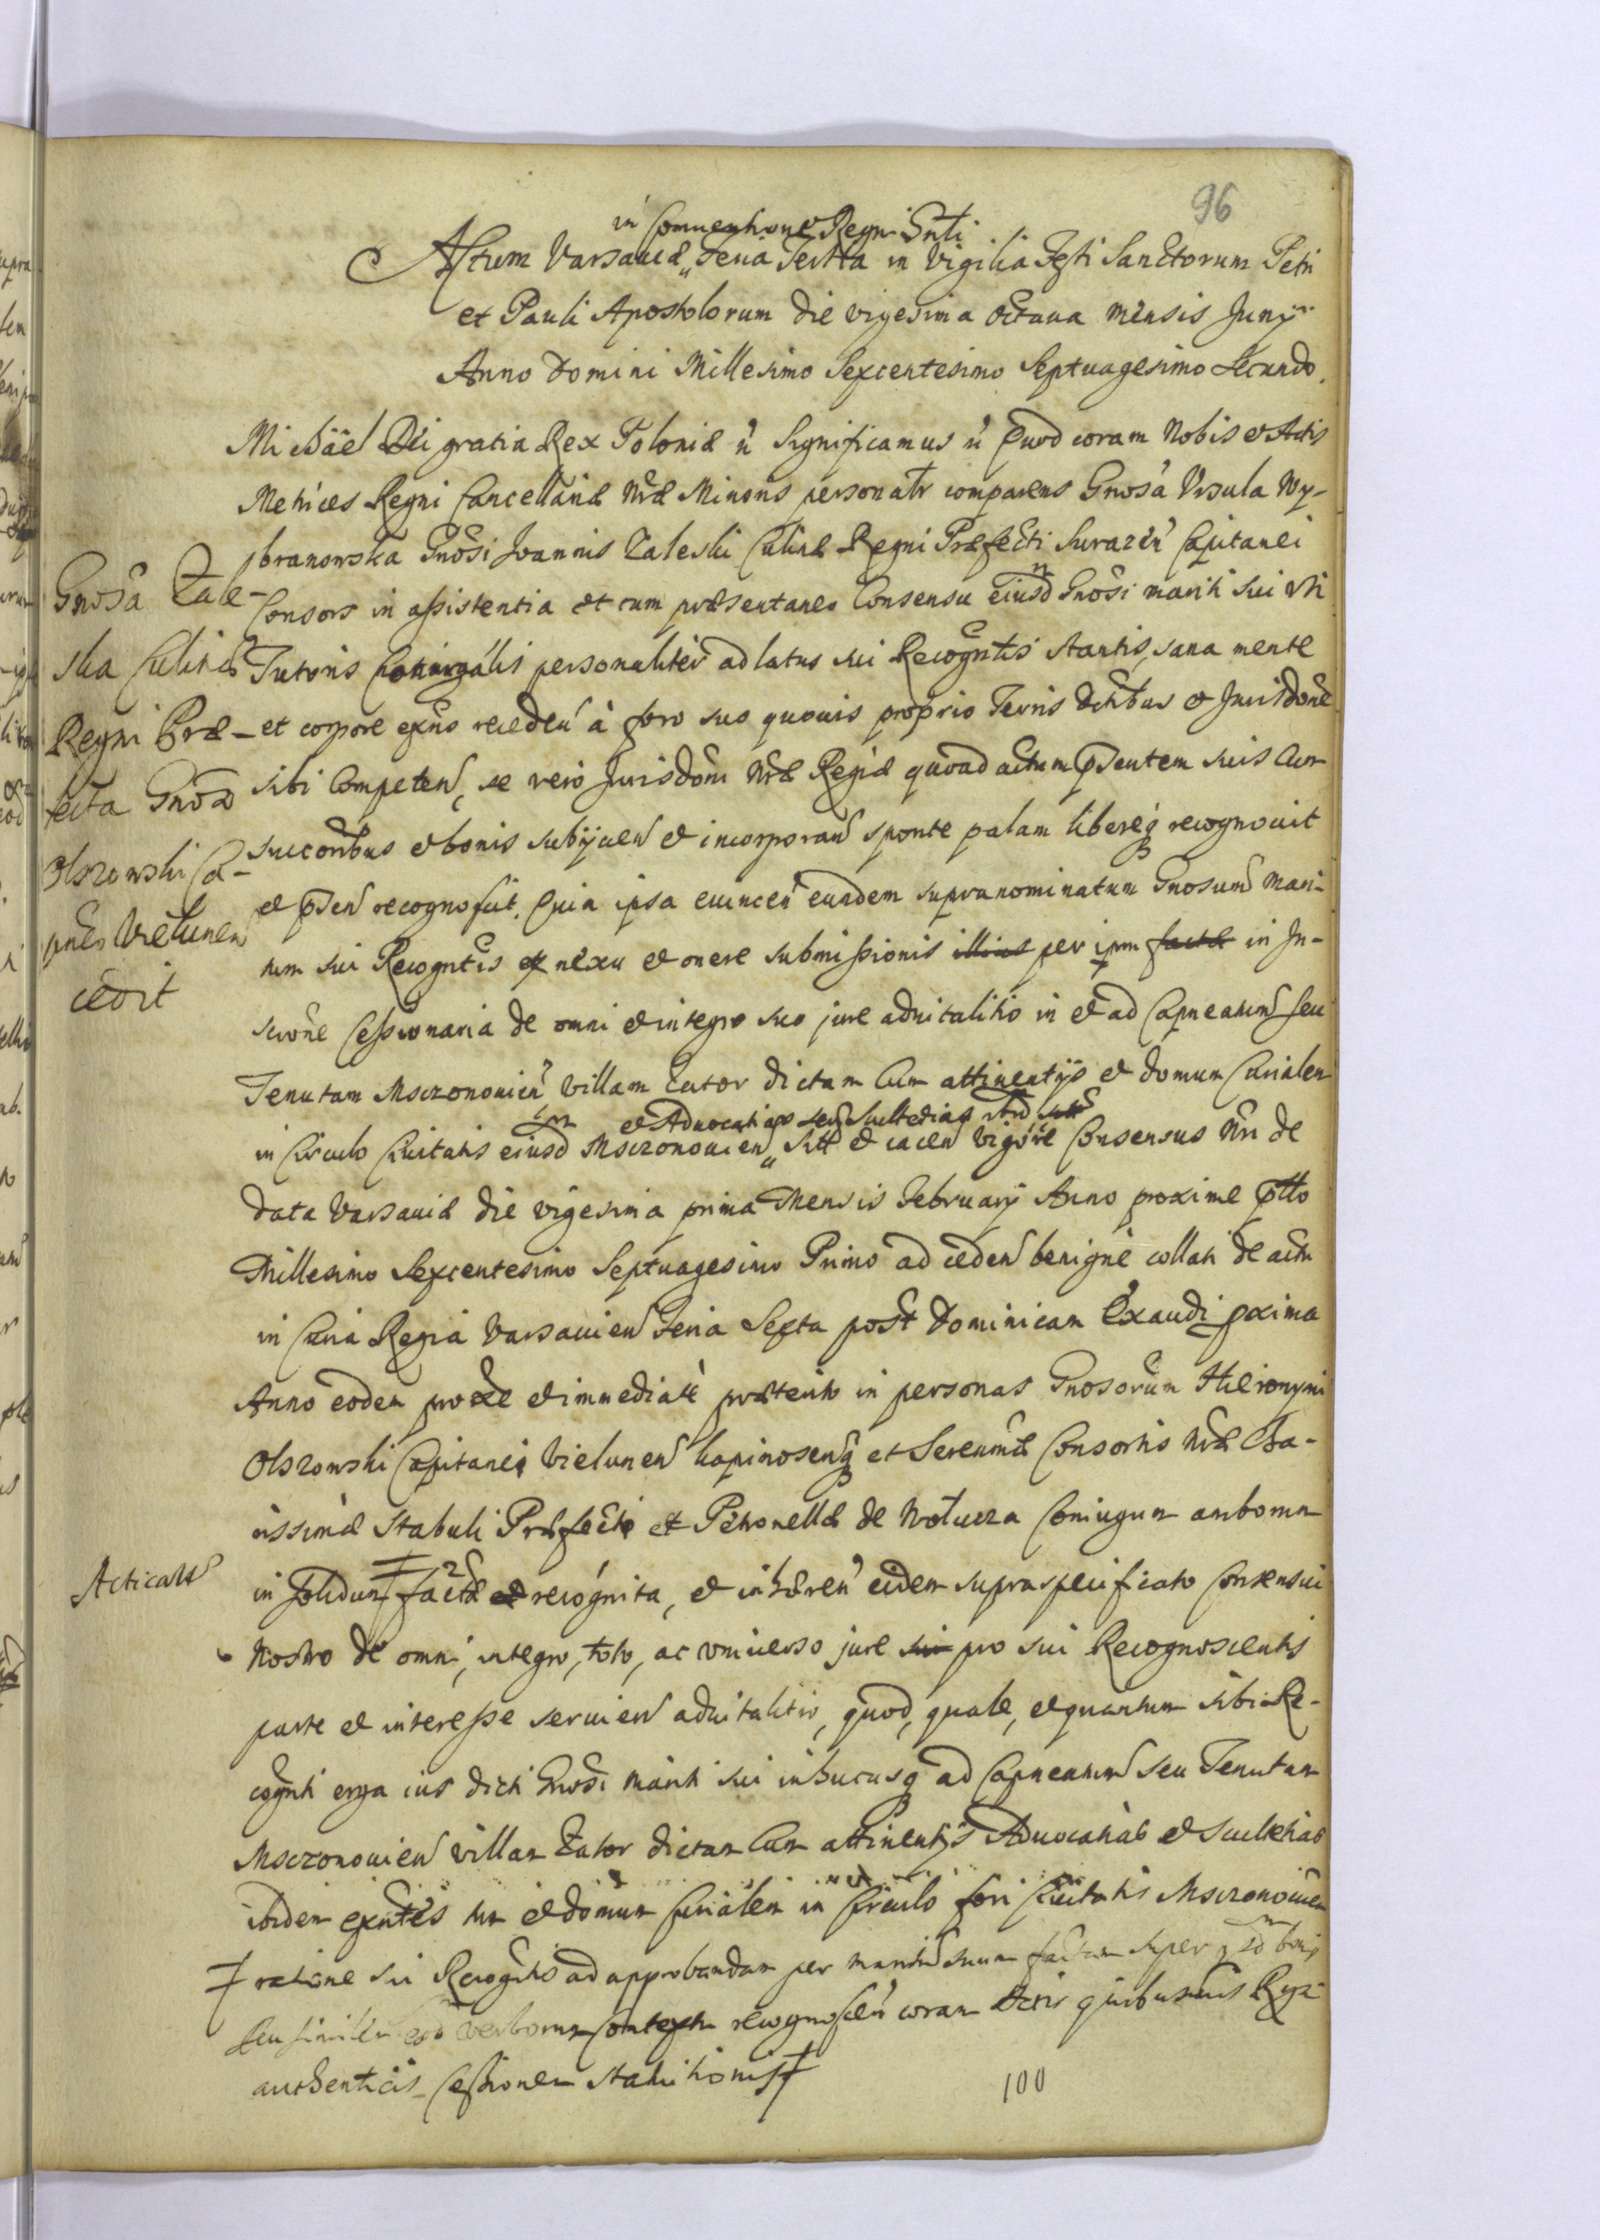 96
in Conuentione Regni Gnli
Actum Varsauiæ Feria Tertia in Vigilia Festi Sanctorum Petri
et Pauli Apostolorum die vigesima octaua mensis Junij
Anno Domini Millesimo Sexcentesimo Septuagesimo Secundo.
Michäel Dei gratia Rex Poloniæ ñ Significamus ñ Quod coram Nobis et Actis
Metrices Regni Cancellariæ Nræ Minoris personalr comparens Gnosa Vrsula Wy-
branowska Gnosi Joannis Zaleski Culinæ Regni Præfecti Surazen Capitanei
Consors in assistentia et cum præsentaneo Consensu eiusd Gnosi mariti sui vti
Tutoris Coniugalis personaliter ad latus sui Recogntis stantis, sana mente
et corpore exns receden à foro suo quouis proprio Terris Dctibus et Jurisdone
sibi Competen, se vero Jurisdoni Nræ Regiæ quoad actum psentem suis cum
succoribus et bonis subijcien et incorporan sponte palam libereq recognouit
et psen recognoscit. Quia ipsa euincen eundem supranominatum Gnosum Mari-
tum sui Recogntis ex nexu et onere submissionis illius per ipm factæ in In-
scrone Cessionaria de omni et integro suo jure aduitalitio in et ad Capneatum seu
Tenutam Msczonouien villam Zator dictam cum attinentijs et domum Curialem
et Aduocatias seu Scultetias ibd
in Circulo Ciuitatis eiusd Msczonouien sitt et iacen vigore Consensus Nri de
data Varsauiæ die vigesima prima Mensis Februarij Anno proxime ptto
Millesimo Sexcentesimo Septuagesimo Primo ad ceden benigne collati de actu
in Curia Regia Varsauien Feria Sexta post Dominicam Exaudi pxima
Anno eodem proxe et immediate præterito in personas Gnosorum Hieronymi
Olszowski Capitanei Vielunen Kapinosenq et Serenmæ Consortis Nræ Cha-
rissimæ Stabuli Præfecti et Petronellæ de Wolucza Coniugum amborum
in solidum factæ et recognita, et inhæren eidem supraspecificato Consensui
Nostro de omni, integro, toto, ac vniuerso jure sui pro sui Recognoscentis
parte et interesse seruien aduitalitio, quod, quale, et quantum sibi Re-
cognti erga ius dicti Gnosi mariti sui inhucusq ad Capneatum seu Tenutam
Msczonouien villam Zator dictam cum attinentijs Aduocatias et Scultetias
ibidem exntes tum et domum Curialem in Circulo fori Ciuitatis Msczonouien
ratione sui Recogntis ad approbandam per maritum suum factam super
seu simili verborum contextu recognoscen coram Actis quibusuis Regni
authenticis Cessionem
Gnosa Zale-
ska Culinæ
Regni Præ-
fecta Gnoso
Olszowski Ca-
pneo Vielunen
cedit
Acticatt
100